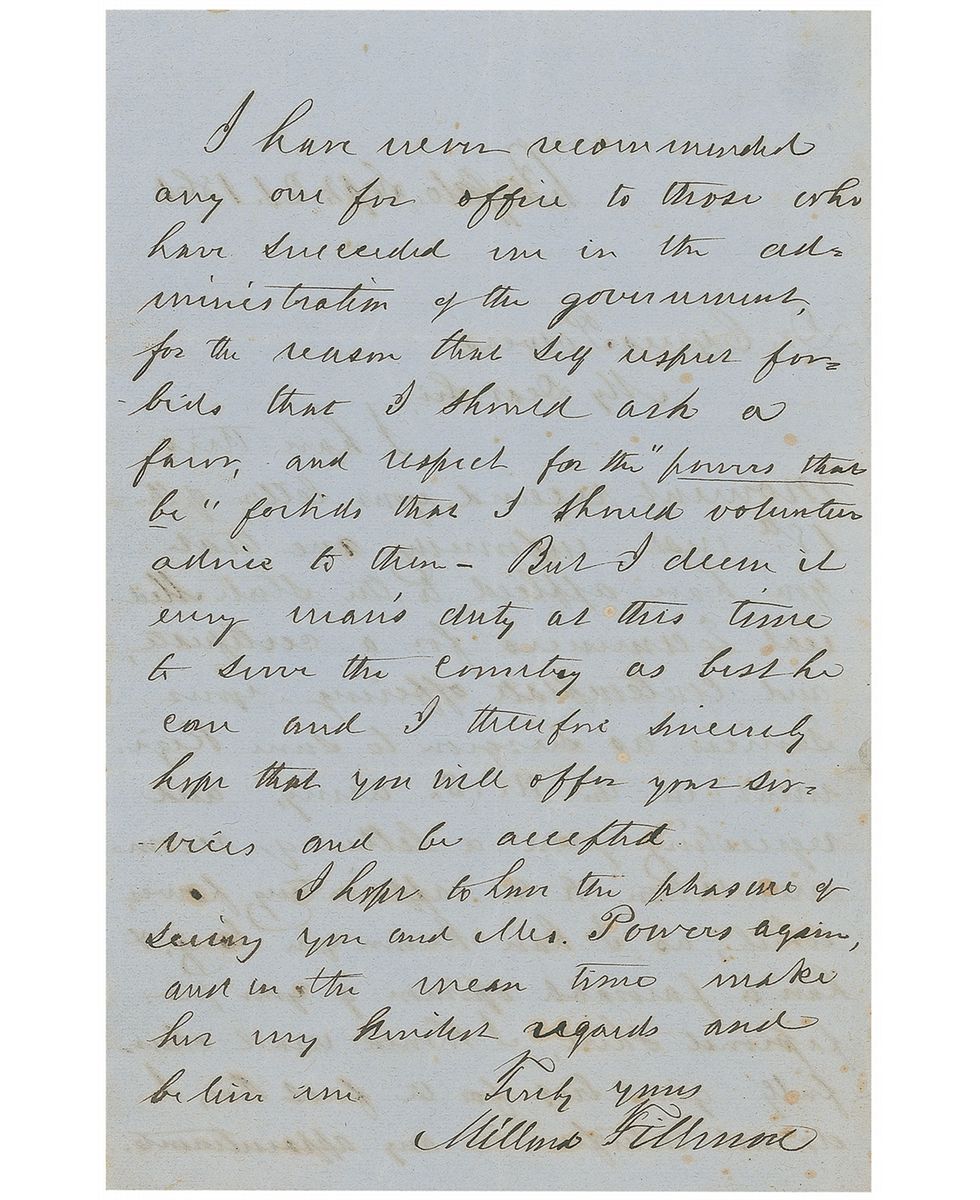 I have never recommended
any one for office to those who
have succeeded me in the ad=
ministration of the government,
for the reason that self respect for=
bids that I should ask a
favor, and respect for the "powers that
be" forbids that I should volunteer
advice to them – But I deem it
every man's duty at this time
to serve the country as best he
can and I therefore sincerely
hope that you will offer your ser=
vices and be accepted.
I hope to have the pleasure of
seeing you and Mrs. Powers again,
and in the mean time make
her my kindest regards and
believe me Truly yours
Millard Fillmore